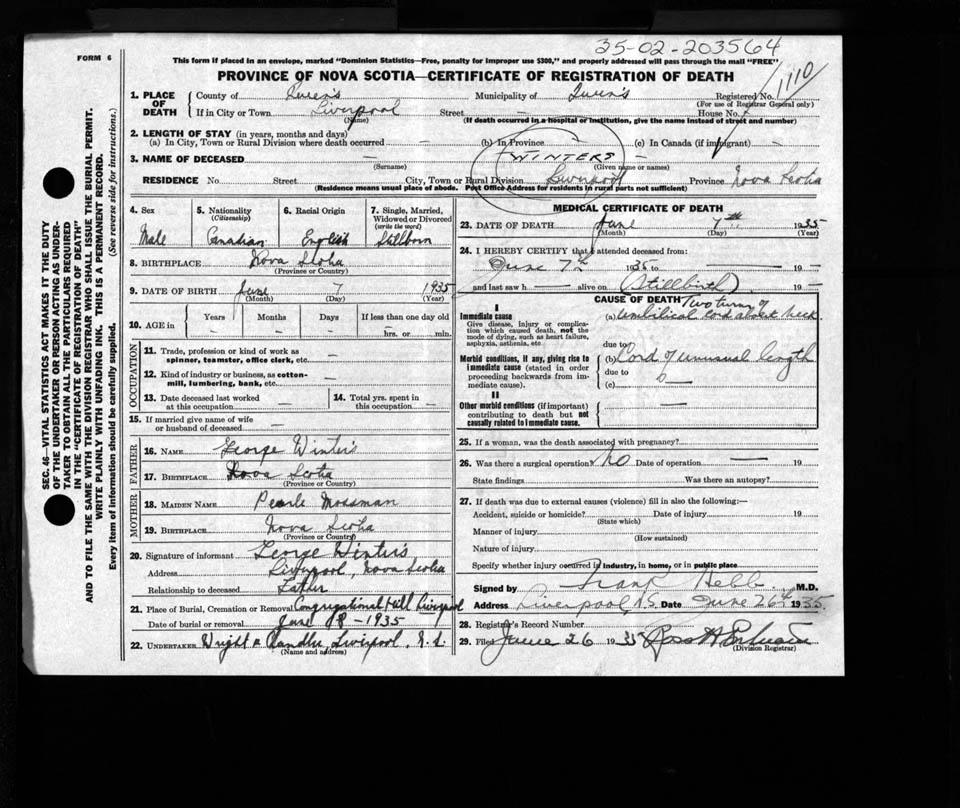 35-02-203564
FORM 6
This form if placed in an envelope, marked "Dominion Statistics—Free, penalty for improper use $300," and properly addressed will pass through the mail "FREE"
PROVINCE OF NOVA SCOTIA—CERTIFICATE OF REGISTRATION OF DEATH
1110
1. PLACE OF DEATH
County of Queen's Municipality of Queen's Registered No.
(For use of Registrar General only)
If in City or Town Liverpool Street — House No.
(Name) (If death occurred in a hospital or institution, give the name instead of street and number)
2. LENGTH OF STAY (in years, months and days)
(a) In City, Town or Rural Division where death occurred — (b) In Province — (c) In Canada (if immigrant) —
3. NAME OF DECEASED — WINTERS —
(Surname) (Given name or names)
RESIDENCE No. Street City, Town or Rural Division Liverpool Province Nova Scotia
(Residence means usual place of abode. Post Office Address for residents in rural parts not sufficient)
4. Sex Male
5. Nationality (Citizenship) Canadian
6. Racial Origin English
7. Single, Married, Widowed or Divorced (write the word) Stillborn
8. BIRTHPLACE Nova Scotia
(Province or Country)
9. DATE OF BIRTH June 7 1935
(Month) (Day) (Year)
10. AGE in Years Months Days If less than one day old
— — — hrs. or min.
OCCUPATION
11. Trade, profession or kind of work as spinner, teamster, office clerk, etc. —
12. Kind of industry or business, as cotton-mill, lumbering, bank, etc. —
13. Date deceased last worked at this occupation —
14. Total yrs. spent in this occupation —
15. If married give name of wife or husband of deceased —
FATHER
16. NAME George Winters
17. BIRTHPLACE Nova Scotia
(Province or Country)
MOTHER
18. MAIDEN NAME Pearle Mossman
19. BIRTHPLACE Nova Scotia
(Province or Country)
20. Signature of informant George Winters
Address Liverpool, Nova Scotia
Relationship to deceased Father
21. Place of Burial, Cremation or Removal Congregational Hill Liverpool
Date of burial or removal June 8 - 1935
22. UNDERTAKER Wright & Chandler Liverpool, N.S.
(Name and address)
MEDICAL CERTIFICATE OF DEATH
23. DATE OF DEATH June 7th 1935
(Month) (Day) (Year)
24. I HEREBY CERTIFY that I attended deceased from:
June 7th 1935 to — 19 —
and last saw h — alive on (Stillbirth) 19 —
CAUSE OF DEATH
I
Immediate cause
Give disease, injury or complication which caused death, not the mode of dying, such as heart failure, asphyxia, asthenia, etc.
(a) Two turns of umbilical cord about neck
due to
Morbid conditions, if any, giving rise to immediate cause (stated in order proceeding backwards from immediate cause).
(b) Cord of unusual length
due to
(c)
II
Other morbid conditions (if important) contributing to death but not causally related to immediate cause.
—
25. If a woman, was the death associated with pregnancy?
26. Was there a surgical operation? No Date of operation — 19
State findings Was there an autopsy?
27. If death was due to external causes (violence) fill in also the following:—
Accident, suicide or homicide? Date of injury 19
(State which)
Manner of injury
(How sustained)
Nature of injury
Specify whether injury occurred in industry, in home, or in public place
Signed by Frank Hebb M.D.
Address Liverpool, N.S. Date June 26th 1935
28. Registrar's Record Number
29. Filed June 26 1935
(Division Registrar)
SEC. 46—VITAL STATISTICS ACT MAKES IT THE DUTY
OF THE UNDERTAKER OR PERSON ACTING AS UNDER-
TAKER TO OBTAIN ALL THE PARTICULARS REQUIRED
IN THE "CERTIFICATE OF REGISTRATION OF DEATH"
AND TO FILE THE SAME WITH THE DIVISION REGISTRAR WHO SHALL ISSUE THE BURIAL PERMIT.
WRITE PLAINLY WITH UNFADING INK. THIS IS A PERMANENT RECORD.
Every item of information should be carefully supplied. (See reverse side for instructions.)